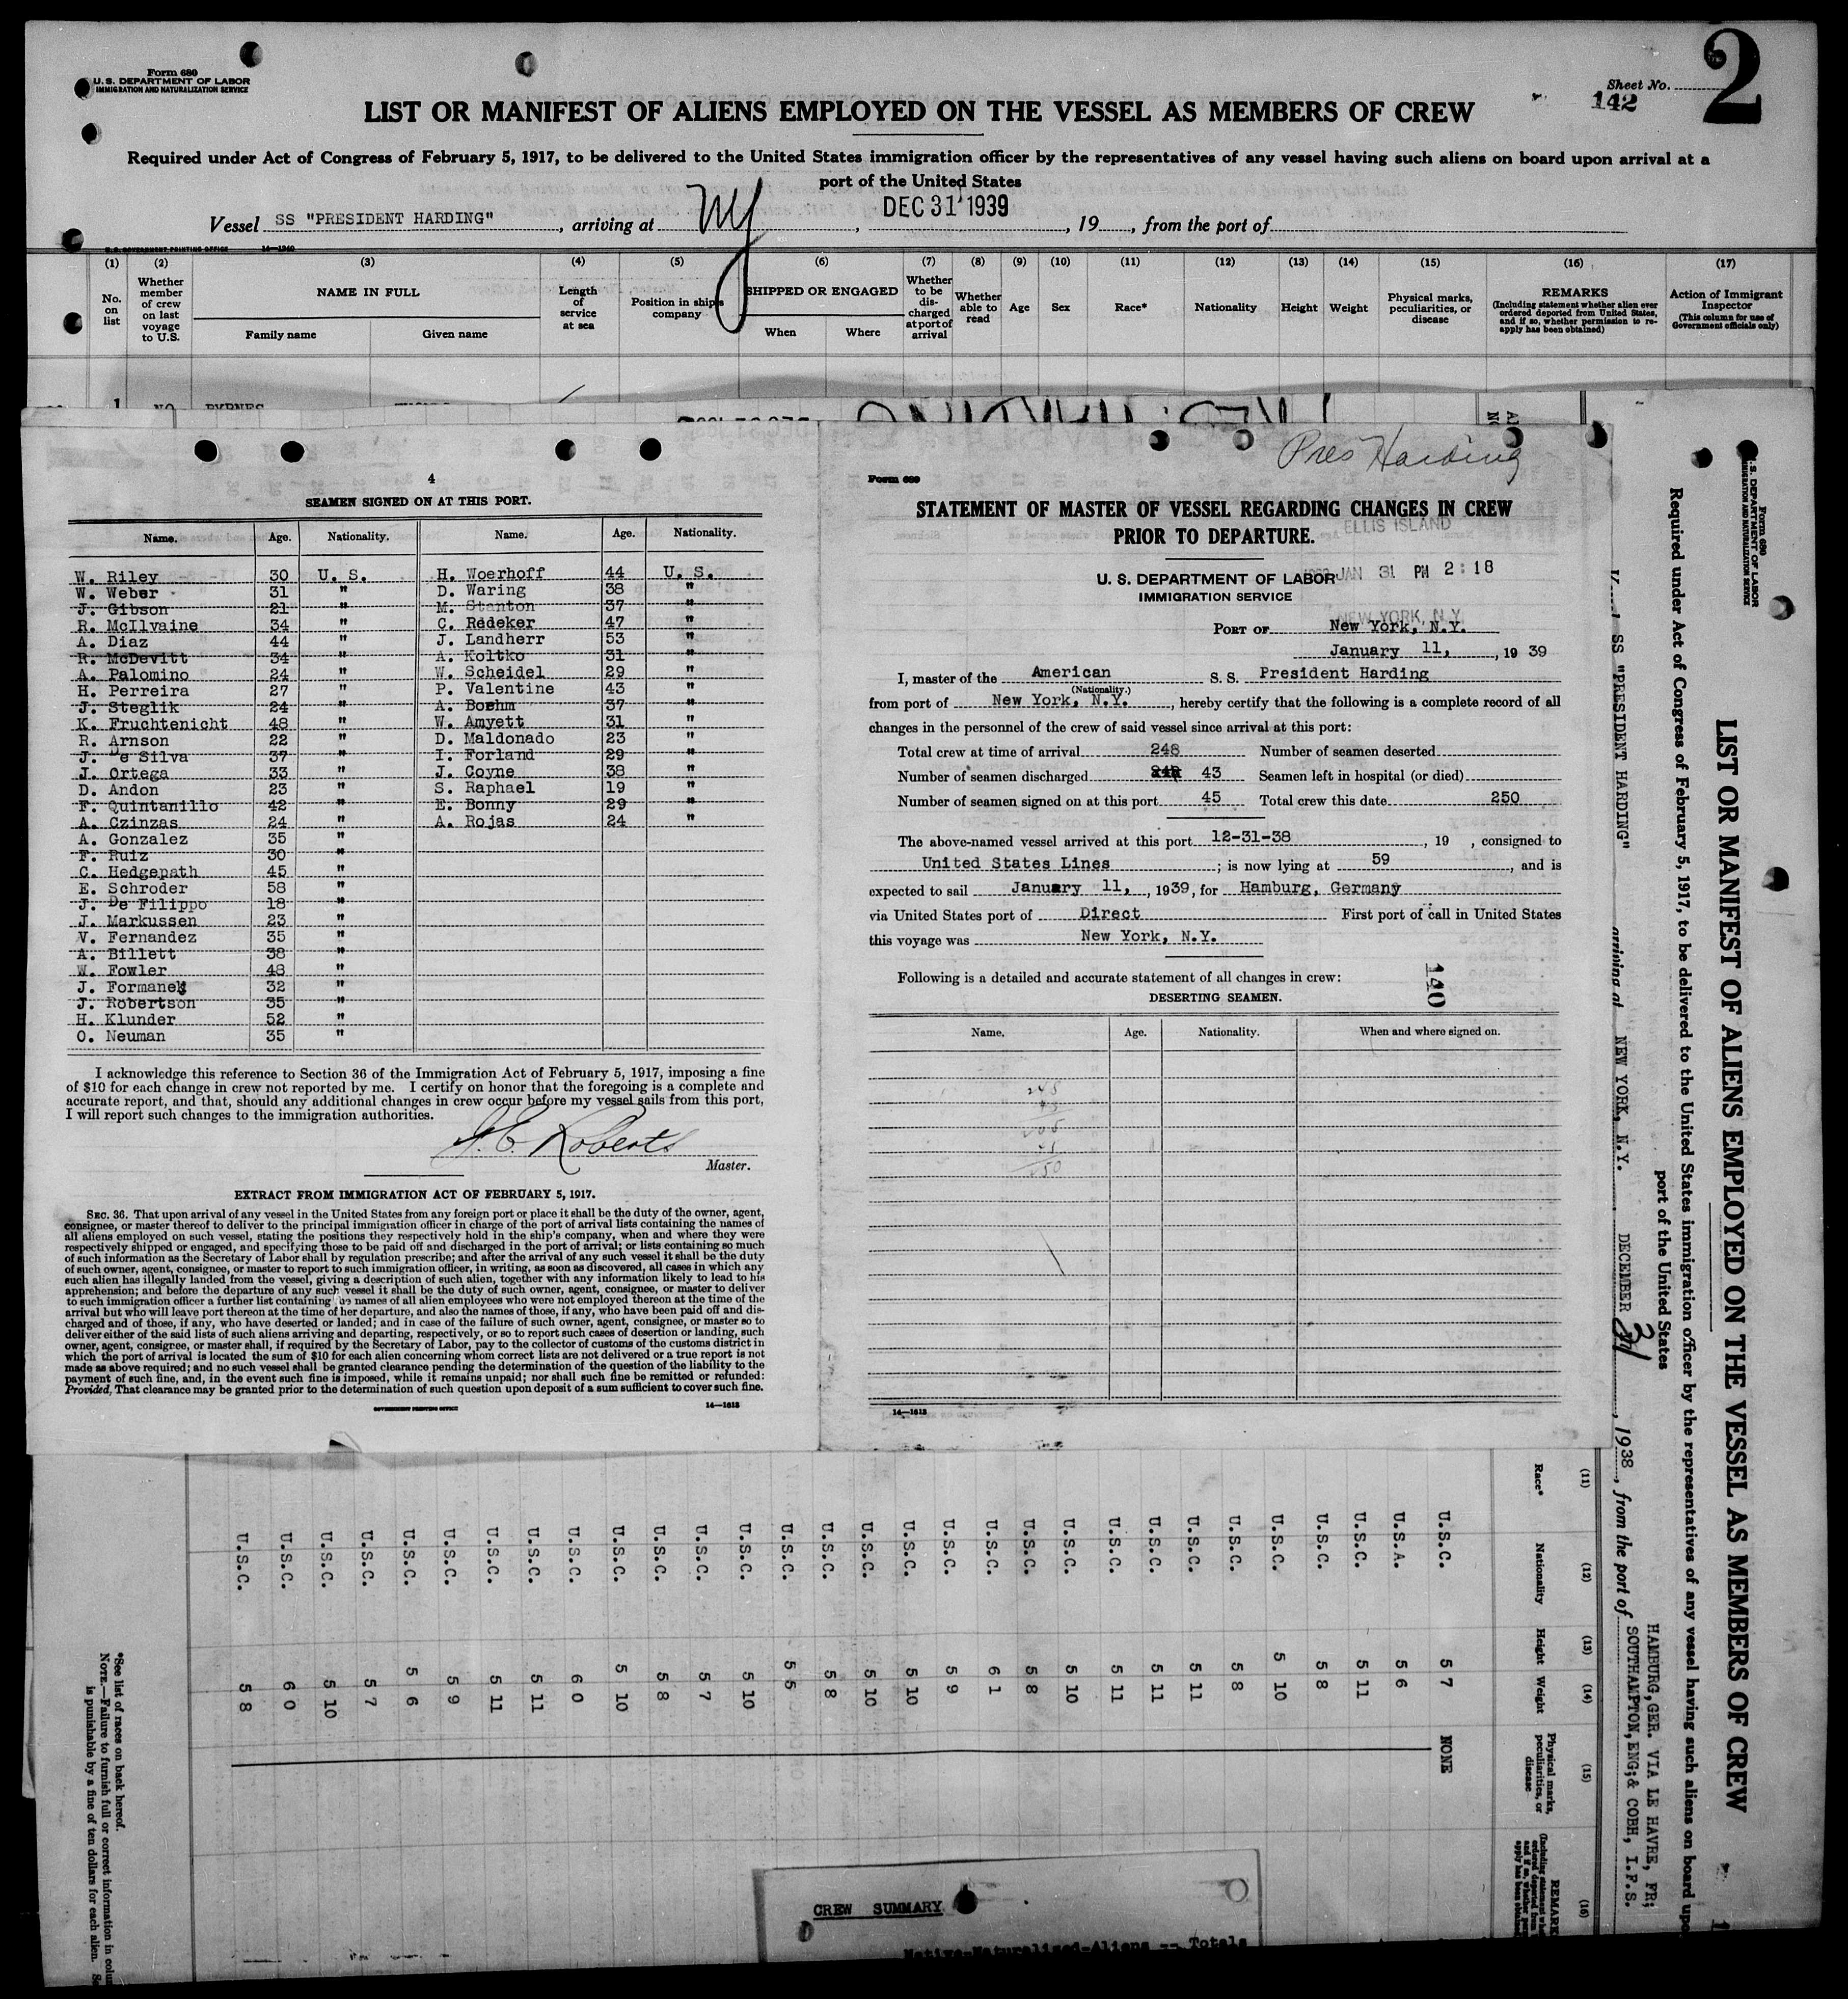 Form 680
U. S. DEPARTMENT OF LABOR
IMMIGRATION AND NATURALIZATION SERVICE
Sheet No.
142
2
LIST OR MANIFEST OF ALIENS EMPLOYED ON THE VESSEL AS MEMBERS OF CREW
Required under Act of Congress of February 5, 1917, to be delivered to the United States immigration officer by the representatives of any vessel having such aliens on board upon arrival at a
port of the United States
Vessel SS "PRESIDENT HARDING", arriving at NY, DEC 31 1939, 19 , from the port of
U. S. GOVERNMENT PRINTING OFFICE 14—1240
(1) (2) (3) (4) (5) (6) (7) (8) (9) (10) (11) (12) (13) (14) (15) (16) (17)
No. on list
Whether member of crew on last voyage to U.S.
NAME IN FULL
Family name Given name
Length of service at sea
Position in ship's company
SHIPPED OR ENGAGED
When Where
Whether to be discharged at port of arrival
Whether able to read
Age Sex Race* Nationality Height Weight
Physical marks, peculiarities, or disease
REMARKS
(Including statement whether alien ever ordered deported from United States, and if so, whether permission to reapply has been obtained)
Action of Immigrant Inspector
(This column for use of Government officials only)
1 NO BYRNES
4
SEAMEN SIGNED ON AT THIS PORT.
Name. Age. Nationality. Name. Age. Nationality.
W. Riley 30 U. S. H. Woerhoff 44 U. S.
W. Weber 31 " D. Waring 38 "
J. Gibson 21 " M. Stanton 37 "
R. McIlvaine 34 " C. Redeker 47 "
A. Diaz 44 " J. Landherr 53 "
R. McDevitt 34 " A. Koltko 31 "
A. Palomino 24 " W. Scheidel 29 "
H. Perreira 27 " P. Valentine 43 "
J. Steglik 24 " A. Boehm 37 "
K. Fruchtenicht 48 " W. Amyett 31 "
R. Arnson 22 " D. Maldonado 23 "
J. De Silva 37 " I. Forland 29 "
J. Ortega 33 " J. Coyne 38 "
D. Andon 23 " S. Raphael 19 "
F. Quintanillo 42 " E. Bonny 29 "
A. Czinzas 24 " A. Rojas 24 "
A. Gonzalez 35 "
F. Ruiz 30 "
C. Hedgepath 45 "
E. Schroder 58 "
J. De Filippo 18 "
J. Markussen 23 "
V. Fernandez 35 "
A. Billett 38 "
W. Fowler 48 "
J. Formanek 32 "
J. Robertson 35 "
H. Klunder 52 "
O. Neuman 35 "
I acknowledge this reference to Section 36 of the Immigration Act of February 5, 1917, imposing a fine
of $10 for each change in crew not reported by me. I certify on honor that the foregoing is a complete and
accurate report, and that, should any additional changes in crew occur before my vessel sails from this port,
I will report such changes to the immigration authorities.
Roberts
Master.
EXTRACT FROM IMMIGRATION ACT OF FEBRUARY 5, 1917.
SEC. 36. That upon arrival of any vessel in the United States from any foreign port or place it shall be the duty of the owner, agent,
consignee, or master thereof to deliver to the principal immigration officer in charge of the port of arrival lists containing the names of
all aliens employed on such vessel, stating the positions they respectively hold in the ship's company, when and where they were
respectively shipped or engaged, and specifying those to be paid off and discharged in the port of arrival; or lists containing so much
of such information as the Secretary of Labor shall by regulation prescribe; and after the arrival of any such vessel it shall be the duty
of such owner, agent, consignee, or master to report to such immigration officer, in writing, as soon as discovered, all cases in which any
such alien has illegally landed from the vessel, giving a description of such alien, together with any information likely to lead to his
apprehension; and before the departure of any such vessel it shall be the duty of such owner, agent, consignee, or master to deliver
to such immigration officer a further list containing names of all alien employees who were not employed thereon at the time of the
arrival but who will leave port thereon at the time of her departure, and also the names of those, if any, who have been paid off and dis-
charged and of those, if any, who have deserted or landed; and in case of the failure of such owner, agent, consignee, or master so to
deliver either of the said lists of such aliens arriving and departing, respectively, or so to report such cases of desertion or landing, such
owner, agent, consignee, or master shall, if required by the Secretary of Labor, pay to the collector of customs of the customs district in
which the port of arrival is located the sum of $10 for each alien concerning whom correct lists are not delivered or a true report is not
made as above required; and no such vessel shall be granted clearance pending the determination of the question of the liability to the
payment of such fine, and, in the event such fine is imposed, while it remains unpaid; nor shall such fine be remitted or refunded:
Provided, That clearance may be granted prior to the determination of such question upon deposit of a sum sufficient to cover such fine.
GOVERNMENT PRINTING OFFICE 14—1613
Pres Harding
Form 689
STATEMENT OF MASTER OF VESSEL REGARDING CHANGES IN CREW
PRIOR TO DEPARTURE.
ELLIS ISLAND
U. S. DEPARTMENT OF LABOR
JAN 31 PM 2:18
IMMIGRATION SERVICE
NEW YORK, N.Y.
PORT OF New York, N.Y.
January 11, , 19 39
I, master of the American S. S. President Harding
(Nationality.)
from port of New York, N.Y. , hereby certify that the following is a complete record of all
changes in the personnel of the crew of said vessel since arrival at this port:
Total crew at time of arrival 248 Number of seamen deserted
Number of seamen discharged 43 Seamen left in hospital (or died)
Number of seamen signed on at this port 45 Total crew this date 250
The above-named vessel arrived at this port 12-31-38 , 19 , consigned to
United States Lines ; is now lying at 59 , and is
expected to sail January 11, , 1939, for Hamburg, Germany
via United States port of Direct First port of call in United States
this voyage was New York, N.Y.
Following is a detailed and accurate statement of all changes in crew:
140
DESERTING SEAMEN.
Name. Age. Nationality. When and where signed on.
14—1613
Form 680
U. S. DEPARTMENT OF LABOR
IMMIGRATION AND NATURALIZATION SERVICE
LIST OR MANIFEST OF ALIENS EMPLOYED ON THE VESSEL AS MEMBERS OF CREW
Required under Act of Congress of February 5, 1917, to be delivered to the United States immigration officer by the representatives of any vessel having such aliens on board upon
port of the United States
SS "PRESIDENT HARDING" arriving at NEW YORK, N.Y. DECEMBER 31, 1938, from the port of
HAMBURG,GER. VIA LE HAVRE, FR;
SOUTHAMPTON,ENG;& COBH, I.F.S.
(11) (12) (13) (14) (15) (16)
Race* Nationality Height Weight Physical marks, peculiarities, or disease REMARKS
U.S.C. 5 7 NONE
U.S.A. 5 6
U.S.C. 5 11
U.S.C. 5 8
U.S.C. 5 10
U.S.C. 5 8
U.S.C. 5 11
U.S.C. 5 11
U.S.C. 5 11
U.S.C. 5 10
U.S.C. 5 8
U.S.C. 6 1
U.S.C. 5 9
U.S.C. 5 10
U.S.C. 5 10
U.S.C. 5 8
U.S.C. 5 5
U.S.C. 5 10
U.S.C. 5 7
U.S.C. 5 8
U.S.C. 5 10
U.S.C. 6 0
U.S.C. 5 11
U.S.C. 5 11
U.S.C. 5 9
U.S.C. 5 6
U.S.C. 5 7
U.S.C. 5 10
U.S.C. 6 0
U.S.C. 5 8
*See list of races on back hereof.
NOTE.—Failure to furnish full or correct information in
is punishable by a fine of ten dollars for each alien.
CREW SUMMARY
Native-Naturalized-Aliens -- Totals